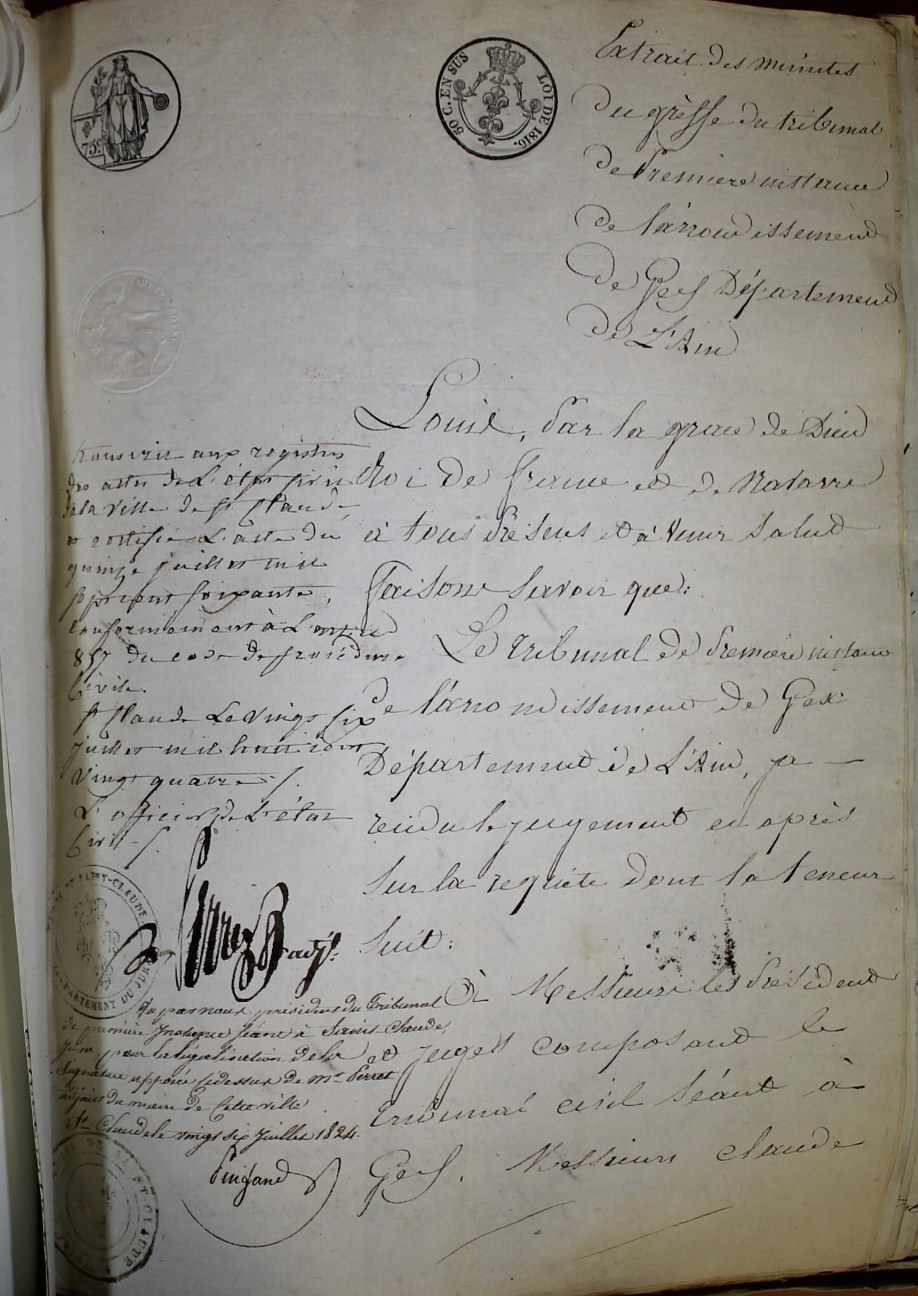 75 c.
50 C. EN SUS
LOI DE 1816.
Extrait des minutes
du grèffe du tribunal
de Premiere instance
de l'àrrondissement
de Gex Département
de L'Ain
Louis, Par la grace de Dieu
Roi de france et de Navarre
à tous Présens et à venir Salut
Faisons Savoir que:
Le tribunal de Premiere instance
de l'àrrondissement de Gex
Département de L'Ain, ya
rendu le jugement en après
Sur la requète dont la teneur
Suit:
À Messieurs les Président
et juges composant le
tribunal civil Séant à
Gex. Messieurs Claude
transcrit aux registres
des actes de L'état civil
de la ville de St Claude,
et rectifié L'acte du
quinze juillet mil
sept cent soixante,
conformément à L'article
857 du code de procédure
Civile.
St Claude Le vingt six
juillet mil huit cent
vingt quatre.
L'officier de L'état
Civil
Perret adjt.
SAINT-CLAUDE
DÉPARTEMENT DU JURA
Vu par nous président du Tribunal
de première Instance séant à Saint Claude,
Jura pour la légalisation de la
Signature apposée cidessus de Mr Perret
adjoint du maire de Cette ville.
St. Claude le vingt six Juillet 1824.
ST-CLAUDE